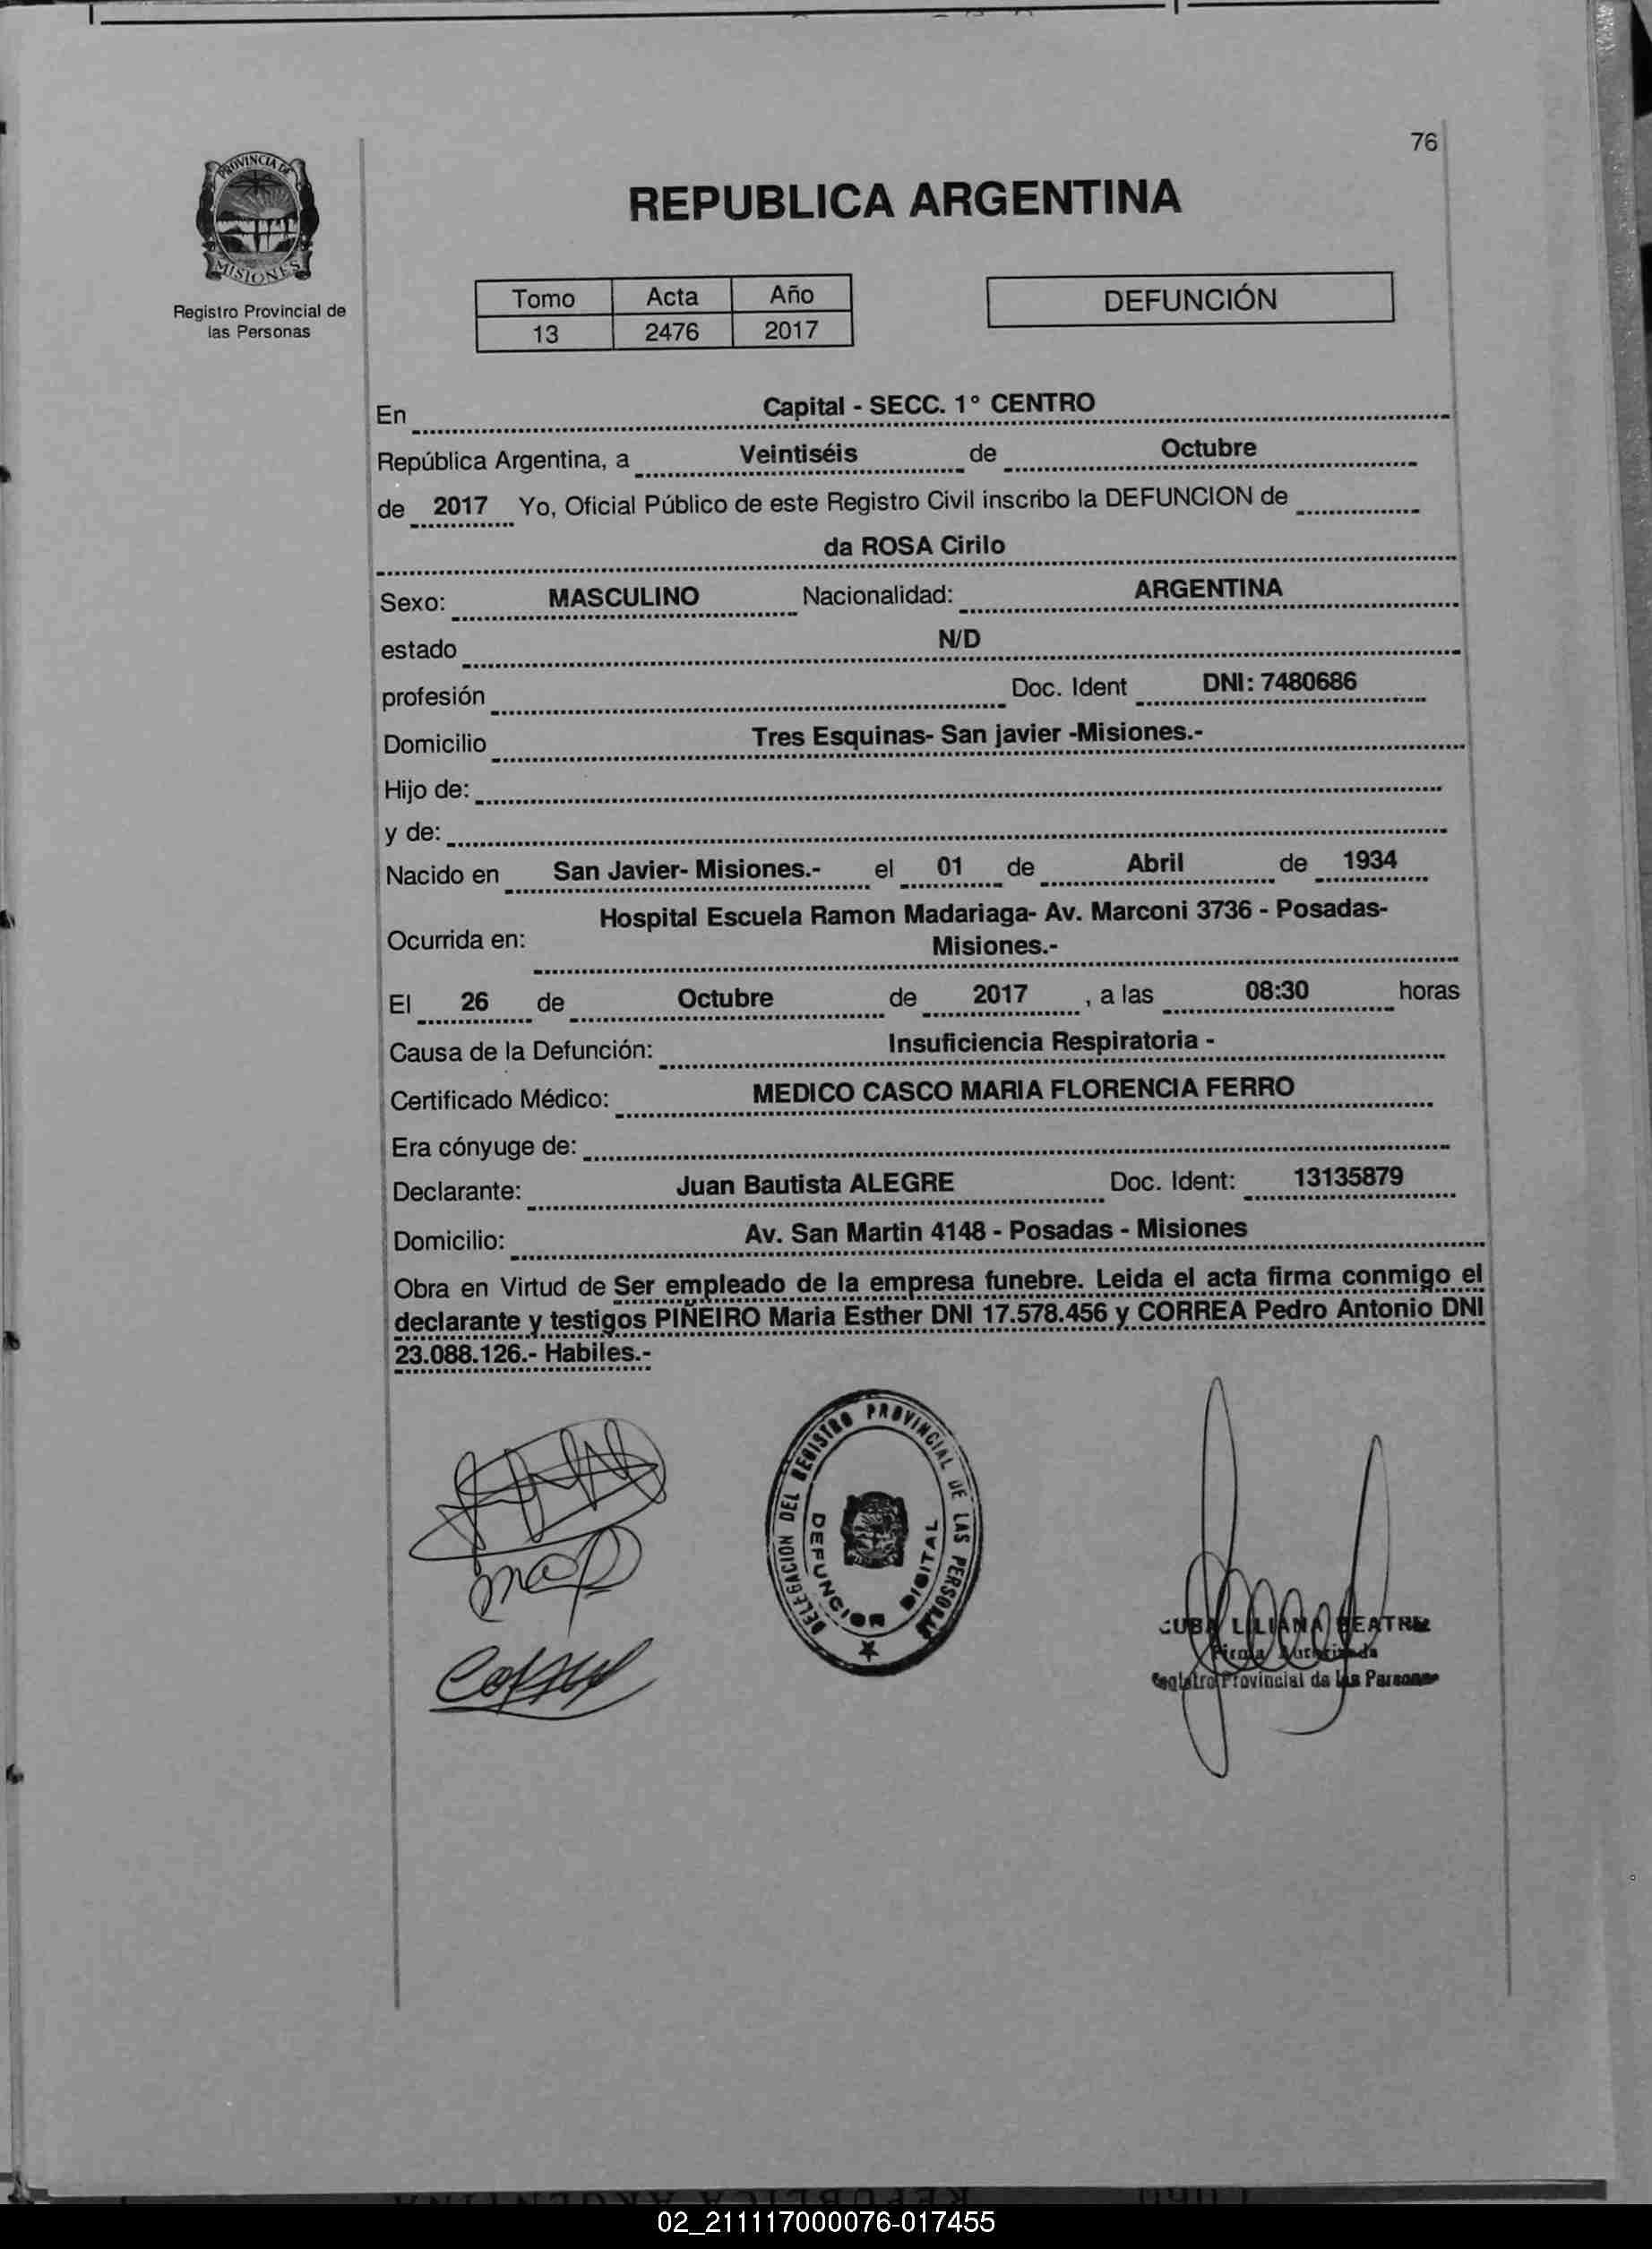 76
PROVINCIA DE
MISIONES
Registro Provincial de
las Personas
REPUBLICA ARGENTINA
Tomo Acta Año
13 2476 2017
DEFUNCIÓN
En Capital - SECC. 1° CENTRO
República Argentina, a Veintiséis de Octubre
de 2017 Yo, Oficial Público de este Registro Civil inscribo la DEFUNCION de
da ROSA Cirilo
Sexo: MASCULINO Nacionalidad: ARGENTINA
estado N/D
profesión Doc. Ident DNI: 7480686
Domicilio Tres Esquinas- San javier -Misiones.-
Hijo de:
y de:
Nacido en San Javier- Misiones.- el 01 de Abril de 1934
Hospital Escuela Ramon Madariaga- Av. Marconi 3736 - Posadas-
Ocurrida en: Misiones.-
El 26 de Octubre de 2017 , a las 08:30 horas
Causa de la Defunción: Insuficiencia Respiratoria -
Certificado Médico: MEDICO CASCO MARIA FLORENCIA FERRO
Era cónyuge de:
Declarante: Juan Bautista ALEGRE Doc. Ident: 13135879
Domicilio: Av. San Martin 4148 - Posadas - Misiones
Obra en Virtud de Ser empleado de la empresa funebre. Leida el acta firma conmigo el
declarante y testigos PIÑEIRO Maria Esther DNI 17.578.456 y CORREA Pedro Antonio DNI
23.088.126.- Habiles.-
DELEGACION DEL REGISTRO PROVINCIAL DE LAS PERSONAS
DEFUNCION DIGITAL
CUBA LILIANA BEATRIZ
Firma Autorizada
Registro Provincial de las Personas
02_211117000076-017455